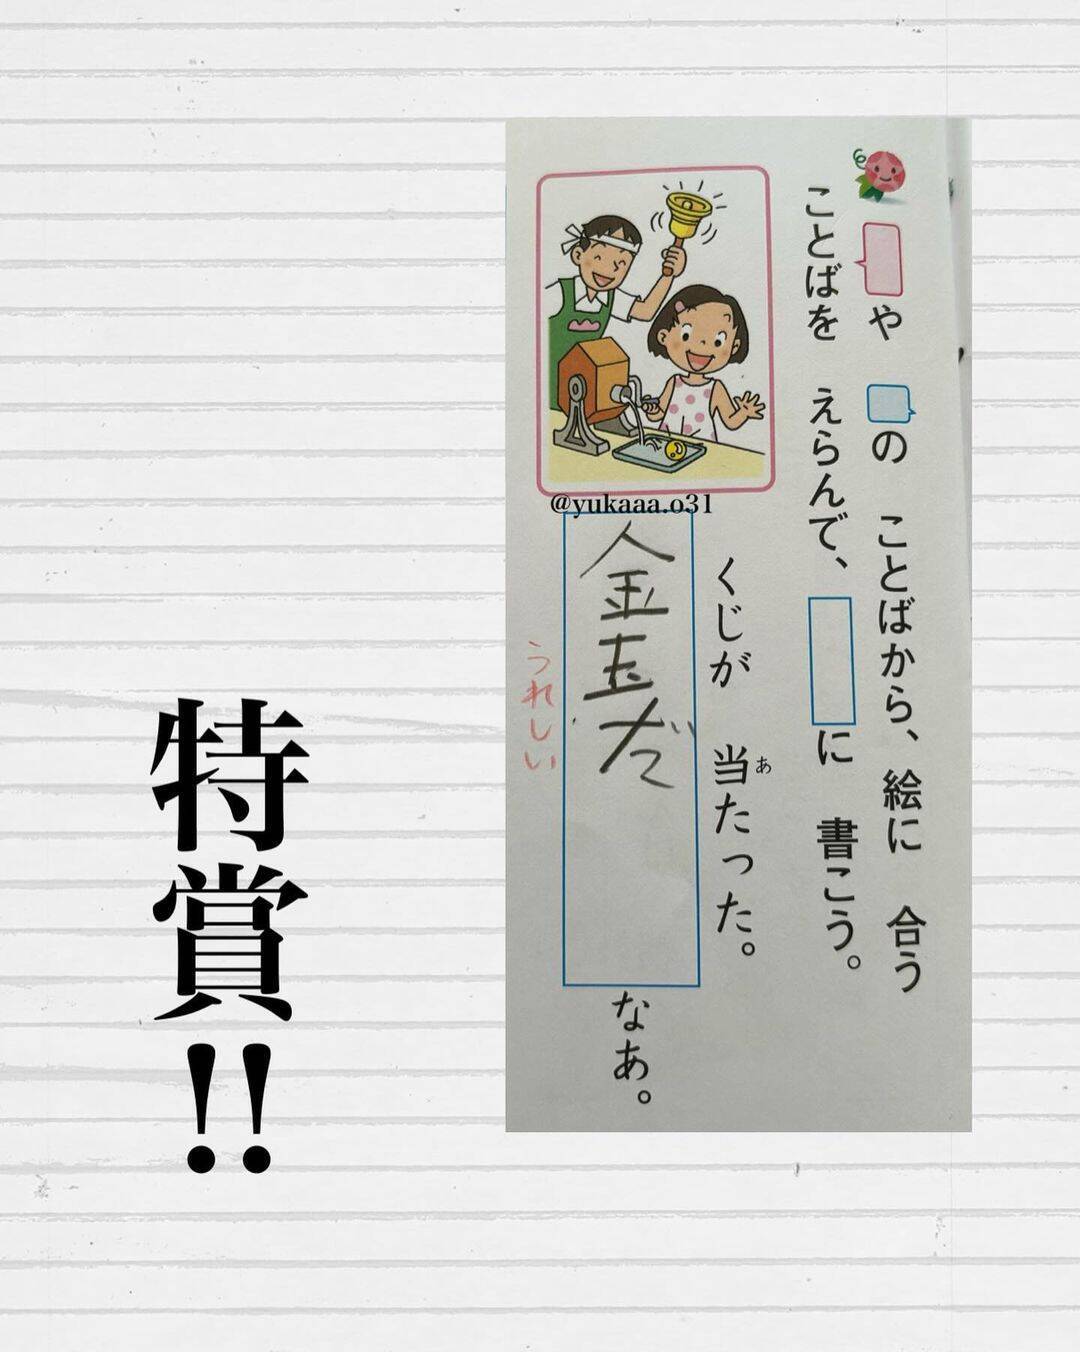 や の ことばから、絵に 合う
ことばを えらんで、 に 書こう。
くじが 当たった。
あ
金玉だ
なあ。
うれしい
@yukaaa.o31
特賞!!